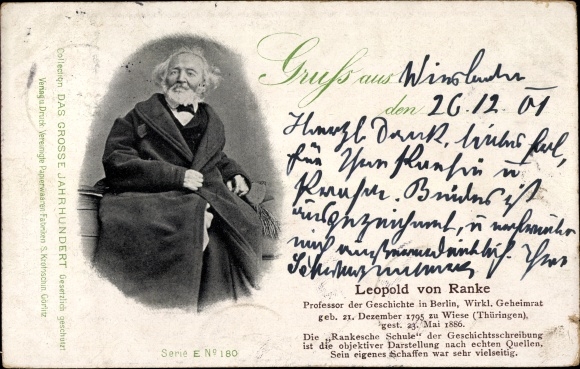 Collection DAS GROSSE JAHRHUNDERT Gesetzlich geschützt
Verlag u. Druck Vereinigte Papierwaaren-Fabriken S. Krotoschin Görlitz
Gruß aus Wiesbaden
den 26.12.01
Herzl. Dank,
für Ihre Karten u
Beides ist
ausgezeichnet, u
mich außerordentlich. Ihre
Leopold von Ranke
Professor der Geschichte in Berlin, Wirkl. Geheimrat
geb. 21. Dezember 1795 zu Wiese (Thüringen),
gest. 23. Mai 1886.
Die „Rankesche Schule" der Geschichtsschreibung
ist die objektiver Darstellung nach echten Quellen.
Sein eigenes Schaffen war sehr vielseitig.
Serie E No 180